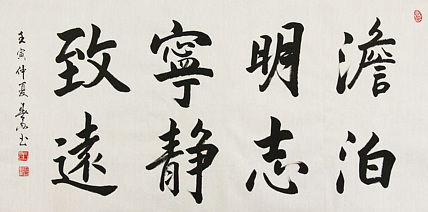 澹泊
明志
寧静
致遠
壬寅仲夏 书